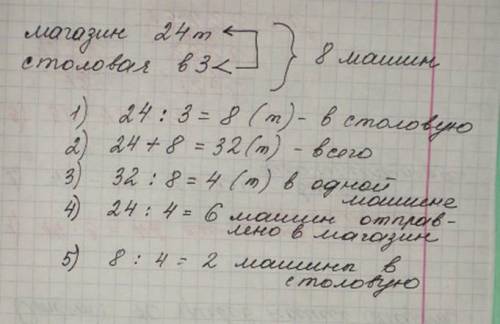 магазин 24 т
столовая в 3 < } 8 машин
1) 24 : 3 = 8 (т) - в столовую
2) 24 + 8 = 32 (т) - всего
3) 32 : 8 = 4 (т) в одной
машине
4) 24 : 4 = 6 машин отправ-
лено в магазин
5) 8 : 4 = 2 машины в
столовую